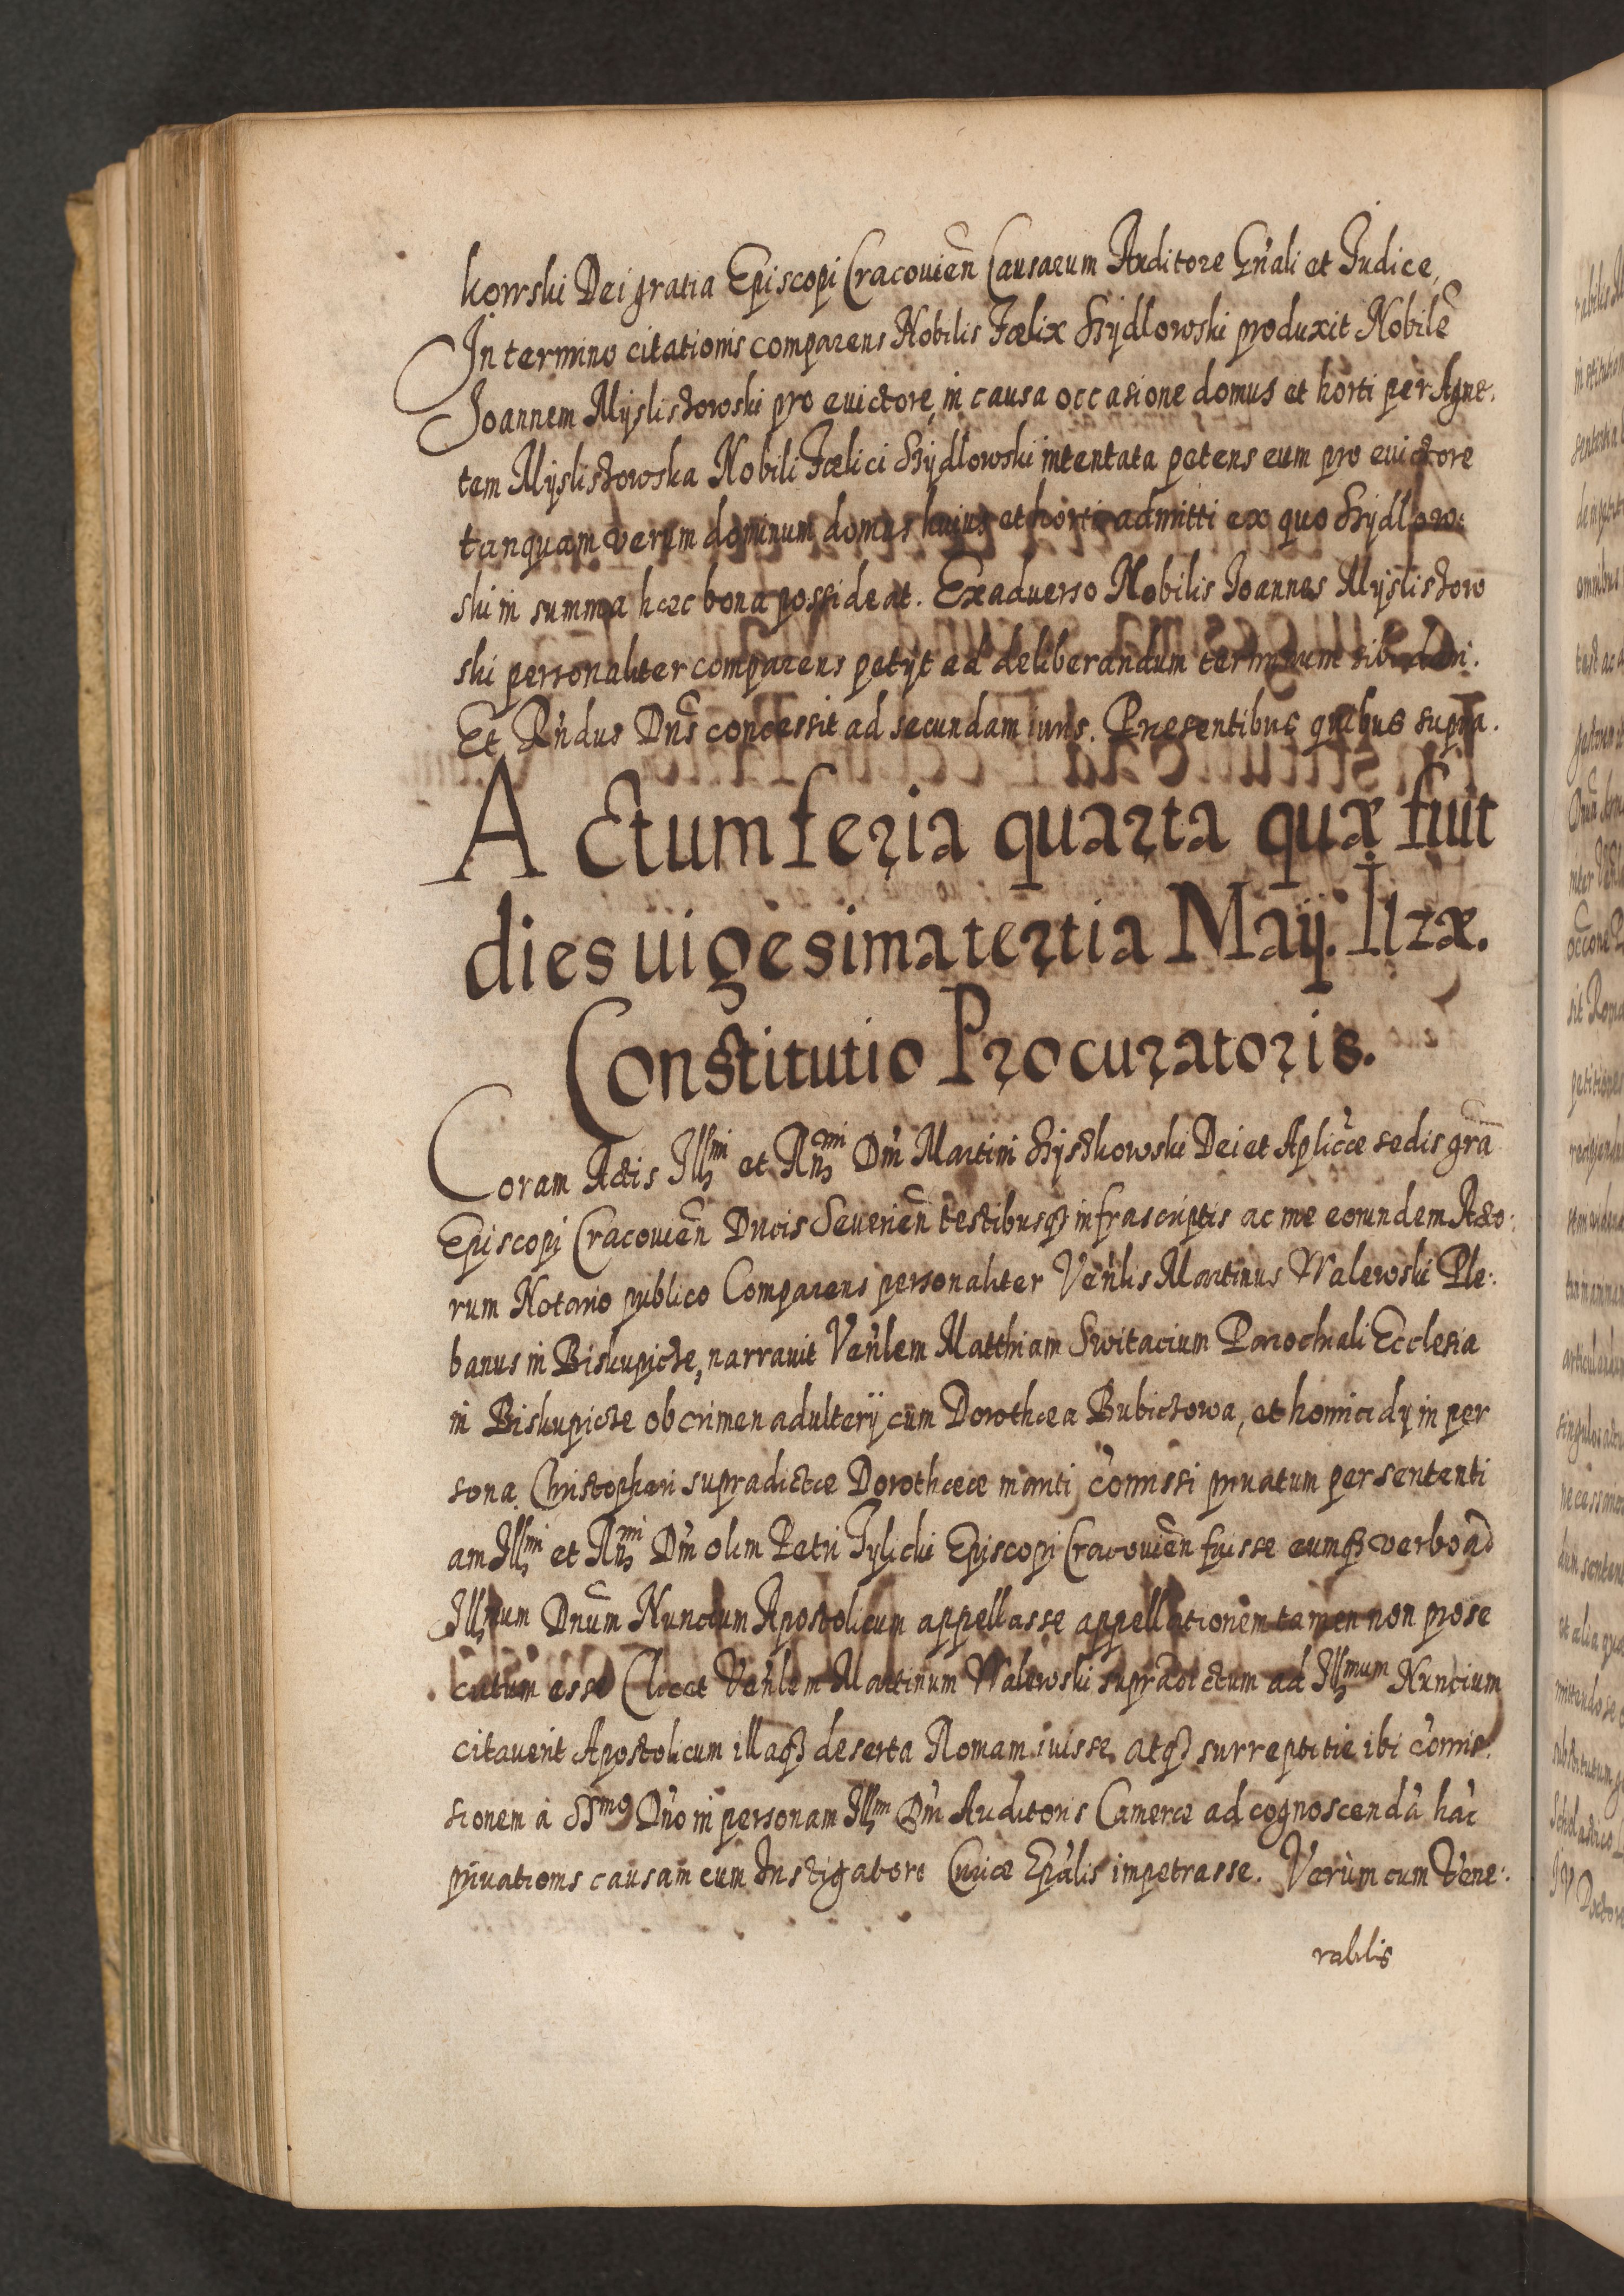 kowski Dei gratia Episcopi Cracouien̄ Causarum Auditore Gn̄ali et Judice,
In termino citationis comparens Nobilis Fœlix Szÿdlowski produxit Nobilē
Joannem Mÿsliszowski pro euictore in causa occasione domus et horti per Agne:
tem Mÿsliszowska Nobili Fœlici Szÿdlowski intentata petens eum pro euictore
tanquam verum dominum domus huius et horti admitti ex quo Szÿdlow:
ski in summa hæc bona possideat. Ex aduerso Nobilis Joannes Mÿsliszow
ski personaliter comparens petÿt ad deliberandum terminum sibi dari.
Et Rn̄dus Dn̄s concessit ad secundam iuris. Presentibus quibus supra.
Actum feria quarta quæ fuit
dies uigesima tertia Maij. Ilzæ.
Constitutio Procuratoris.
Coram Actis Illmi et Rmi Dn̄i Martini Szyszkowski Dei et Aplicæ sedis grā
Episcopi Cracouien̄ Ducis Seuerien̄ testibusqʒ infrascriptis ac me eorundem Acto:
rum Notario publico Comparens personaliter Ven̄lis Martinus Walewski Ple:
banus in Biskupicze, narrauit Ven̄lem Matthiam Switacium Parochiali Ecclesia
in Biskupicze ob crimen adulterij cum Dorothæa Bubiczowa, et homicidij in per
sona Christopheri supradictæ Dorothææ mariti com̄issi priuatum per sententi
am Illmi et Rmi Dn̄i olim Petri Tylicki Episcopi Cracouien̄ fuisse eumqʒ verbo ad
Illmum Dnūm Nuncium Apostolicum appellasse appellationem tamen non prose
cutum esse (licet Ven̄lem Martinum Walewski supradictum ad Illmum Nuncium
citauerit Apostolicum illaqʒ deserta Romam iuisse, atqʒ surreptitie ibi com̄is:
sionem à SSmo Dn̄o in personam Illmi Dn̄i Auditoris Cameræ ad cognoscendā hāc
priuationis causam cum Instigatore Curiæ Ep̄alis impetrasse. Verùm cum Vene:
rabilis